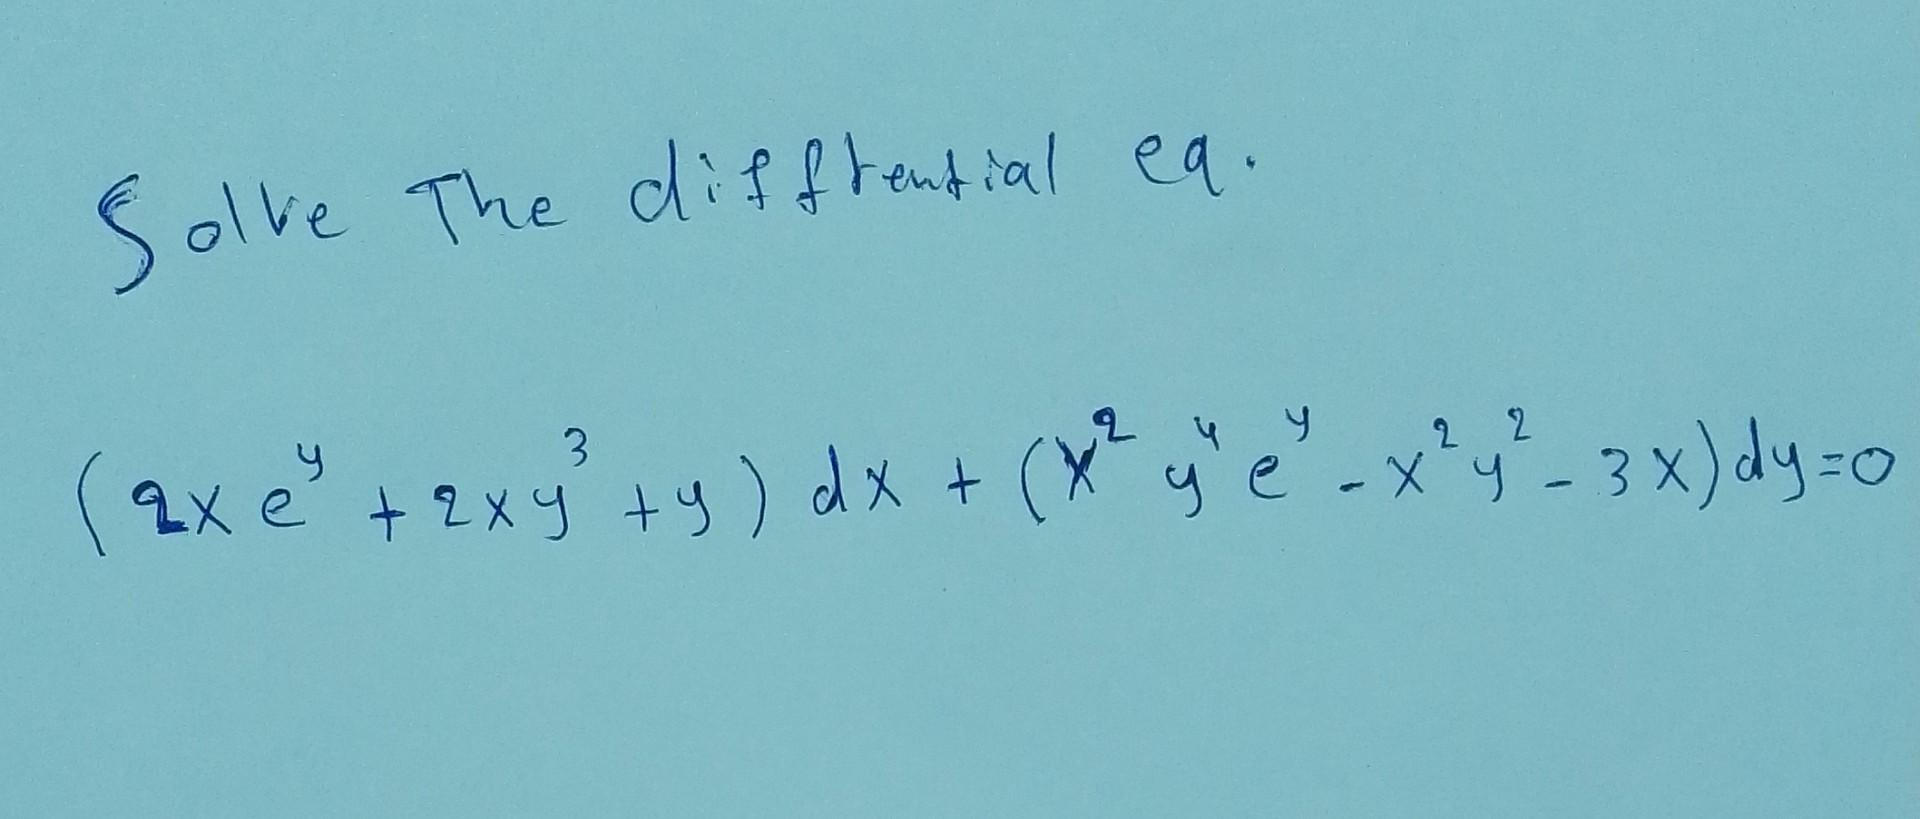 Solve The difftential eq.
(2xe^y + 2xy^3 + y) dx + (x^2 y^4 e^y - x^2 y^2 - 3x) dy = 0